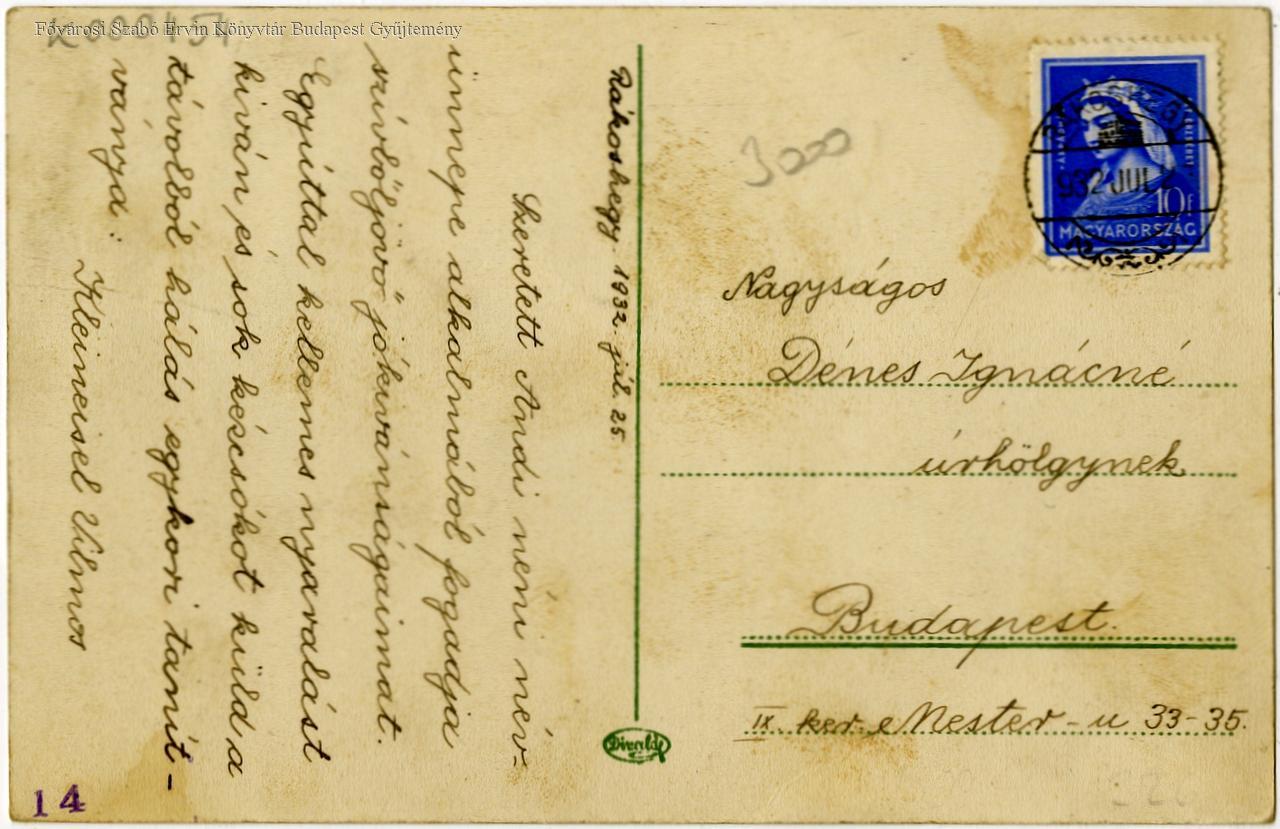 Fővárosi Szabó Ervin Könyvtár Budapest Gyűjtemény
Rákoshegy 1932. júl. 25.
Szeretett Andi néni név-
ünnepe alkalmából fogadja
szívbőljövő jókivánságaimat.
Egyúttal kellemes nyaralást
kiván és sok kézcsókot küld a
távolból hálás egykori tanít-
ványa:
Kleineisel Vilmos
14
3000
932 JUL
10f
MAGYARORSZÁG
Nagyságos
Dénes Ignácné
úrhölgynek
Budapest.
IX. ker. Mester-u 33-35.
Divald